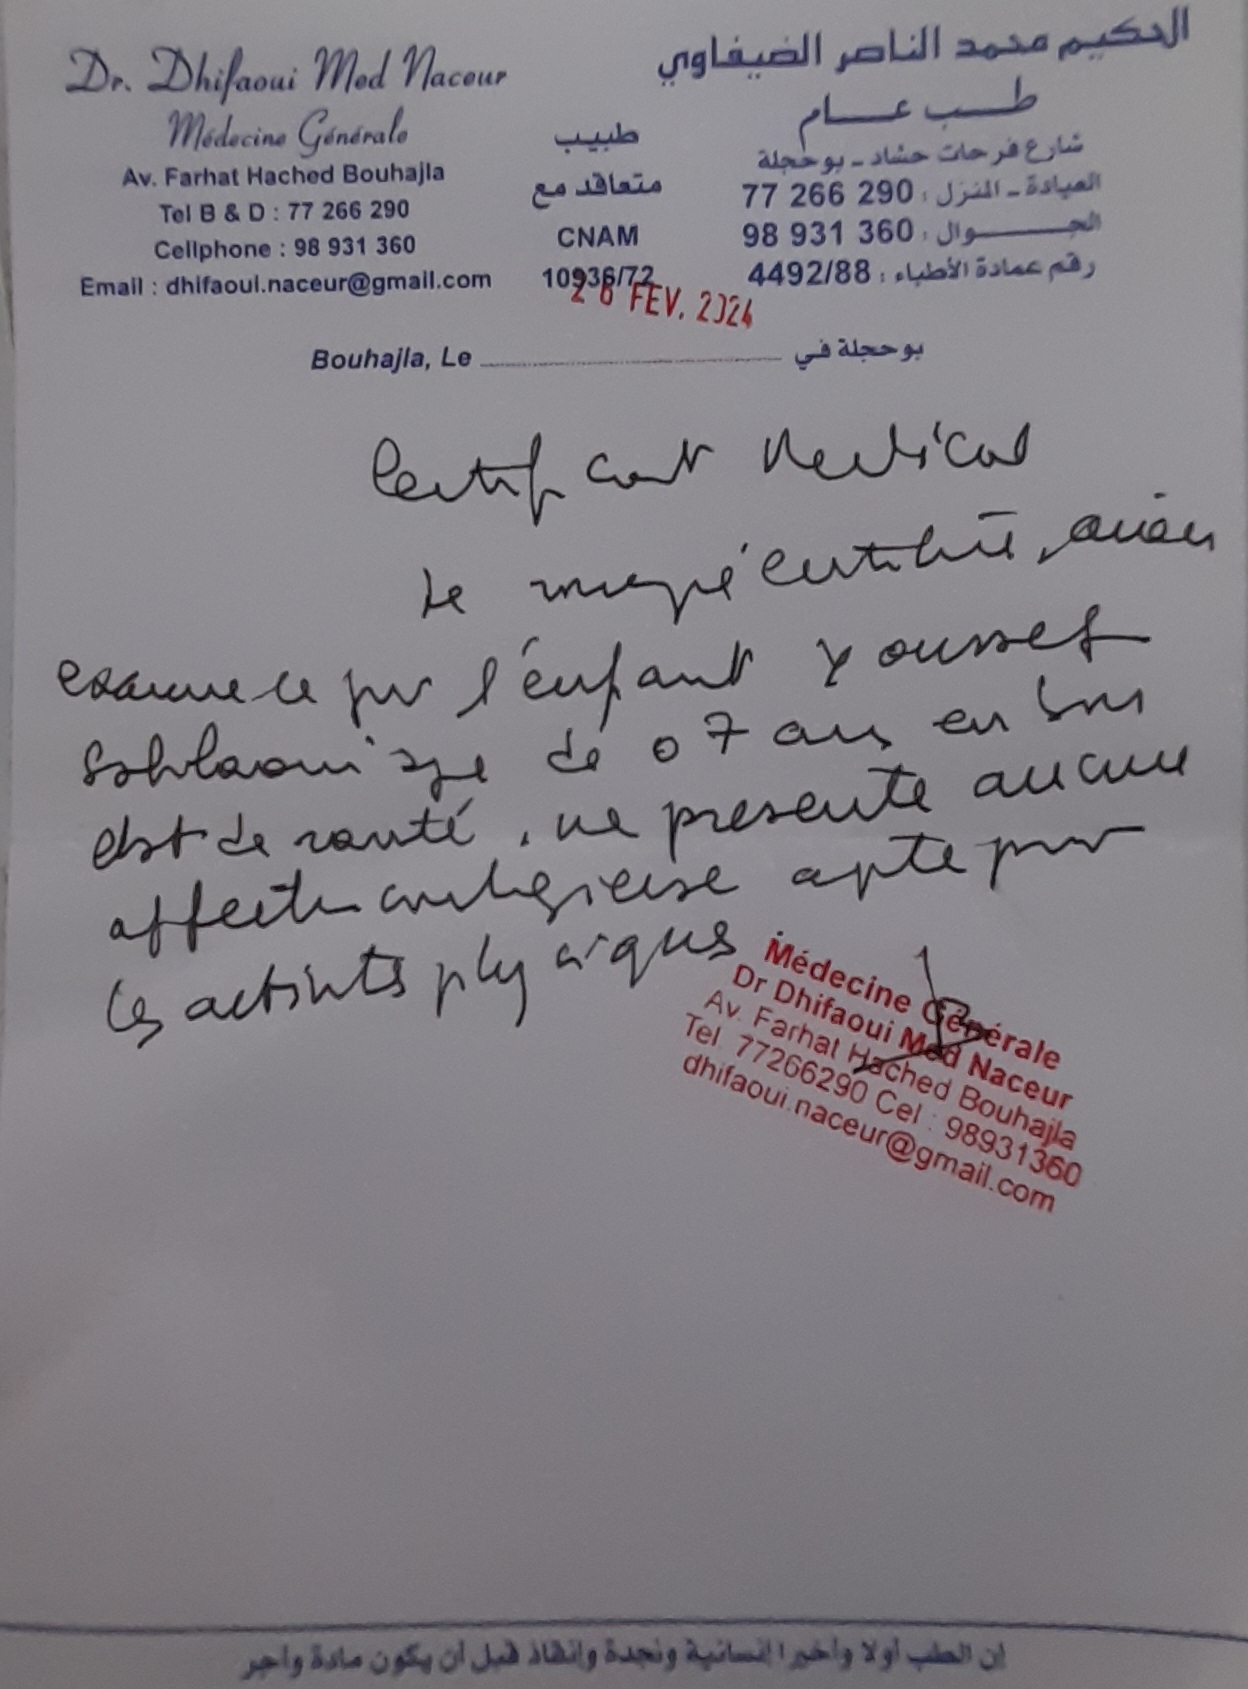 Dr. Dhifaoui Med Naceur
Médecine Générale
Av. Farhat Hached Bouhajla
Tel B & D : 77 266 290
Cellphone : 98 931 360
Email : dhifaoui.naceur@gmail.com
طبيب
متعاقد مع
CNAM
10936/72
الحكيم محمد الناصر الضيفاوي
طب عام
شارع فرحات حشاد - بوحجلة
العيادة - المنزل : 77 266 290
الجوال : 98 931 360
رقم عمادة الأطباء : 4492/88
26 FEV. 2024
Bouhajla, Le ........ بوحجلة في
Certificat Medical
Je
examiné ce jour l'enfant Youssef
age de 07 ans en bon
état de santé, ne presente aucune
affection contagieuse apte pour
les activités physiques
Médecine Générale
Dr Dhifaoui Med Naceur
Av. Farhat Hached Bouhajla
Tel 77266290 Cel : 98931360
dhifaoui.naceur@gmail.com
إن الطب أولا وأخيرا إنسانية ونجدة وإنقاذ قبل أن يكون مادة وأجر